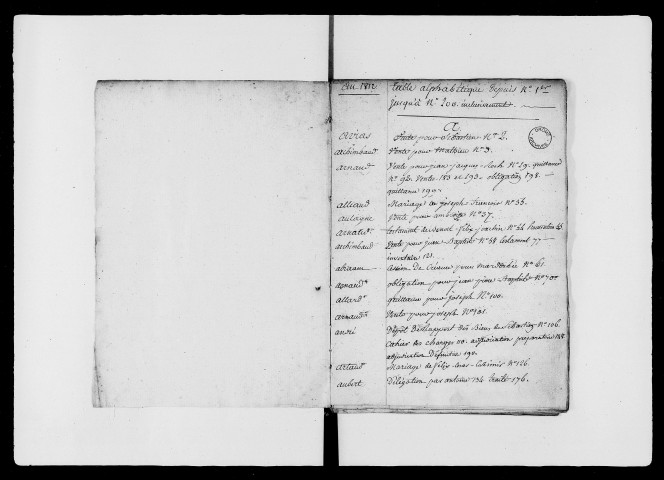 an 1812 Table alphabétique depuis N° 1er
jusqu'à N° 200 inclusivement.
A
avias Vente pour Sébastien N° 2.
archimbaud Vente pour Mathieu N° 3.
arnaud Vente pour jean jacques N° 19. quittance
N° 96. Ventes 183 et 193. obligation 198.
quittance 199.
alliaud Mariage de joseph françois N° 35.
aubagne Vente pour ambroise N° 37.
testament de félix joachim N° 44 Inventaire
archimbaud Vente pour jean Baptiste N° 58 testament 77
inventaire 121.
abraam Cession de Créance pour mardochée N° 61
obligation pour jean pierre Baptiste N° 70
allard quittance pour joseph N° 100.
arnaud Vente pour joseph N° 101.
andré Dépôt du rapport des Biens de N° 106.
Cahier des charges adjudication préparatoire
adjudication Définitive 190.
artaud Mariage de félix N° 126.
aubert Délégation par antoine 134 traité 176.